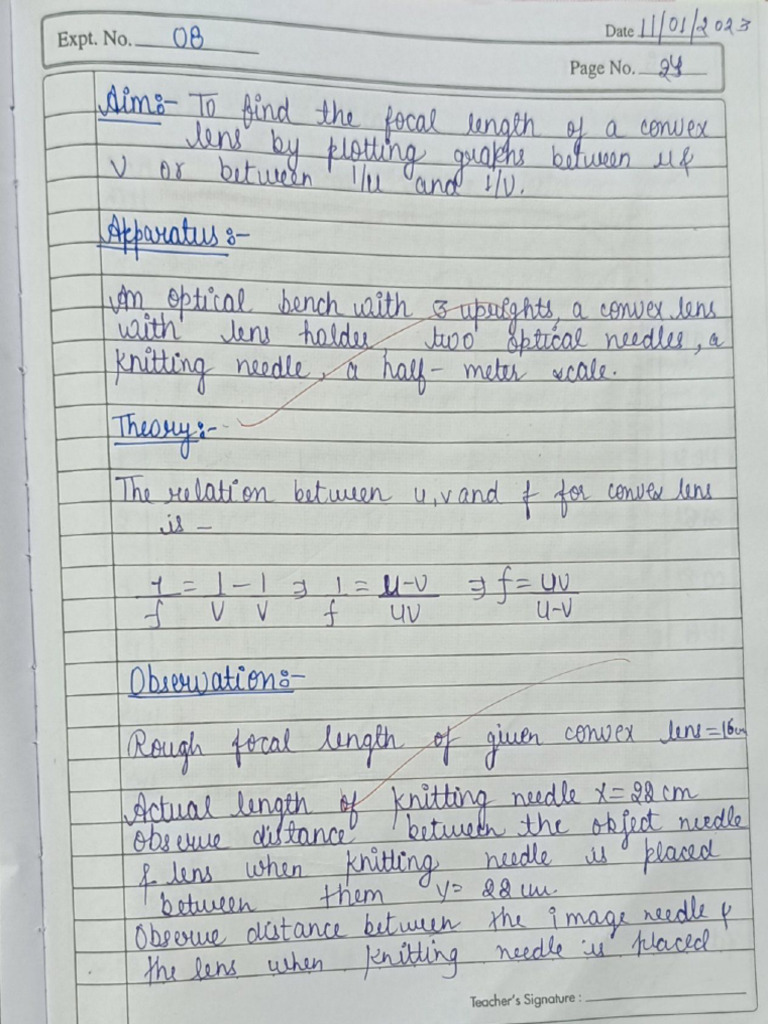 Expt. No. 08
Date 11/01/2023
Page No. 24
Aim:- To find the focal length of a convex
lens by plotting graphs between u &
v or between 1/u and 1/v.
Apparatus:-
An optical bench with 3 uprights, a convex lens
with lens holder two optical needles, a
knitting needle, a half-meter scale.
Theory:-
The relation between u, v and f for convex lens
is -
1/f = 1/v - 1/v ⇒ 1/f = u-v/uv ⇒ f = uv/u-v
Observation:-
Rough focal length of given convex lens = 16cm
Actual length of knitting needle x = 22 cm
Observe distance between the object needle
& lens when knitting needle is placed
between them y = 22 cm.
Observe distance between the image needle &
the lens when knitting needle is placed
Teacher's Signature :